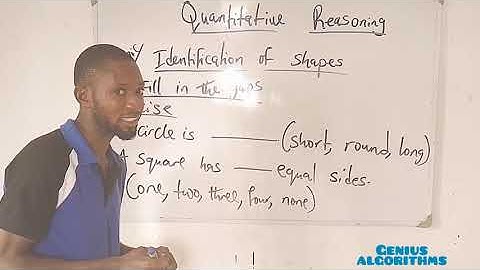 Quantitative Reasoning
Identification of shapes
Fill in the gaps
Circle is ______ (short, round, long)
A square has ____ equal sides.
(one, two, three, four, none)
GENIUS
ALGORITHMS